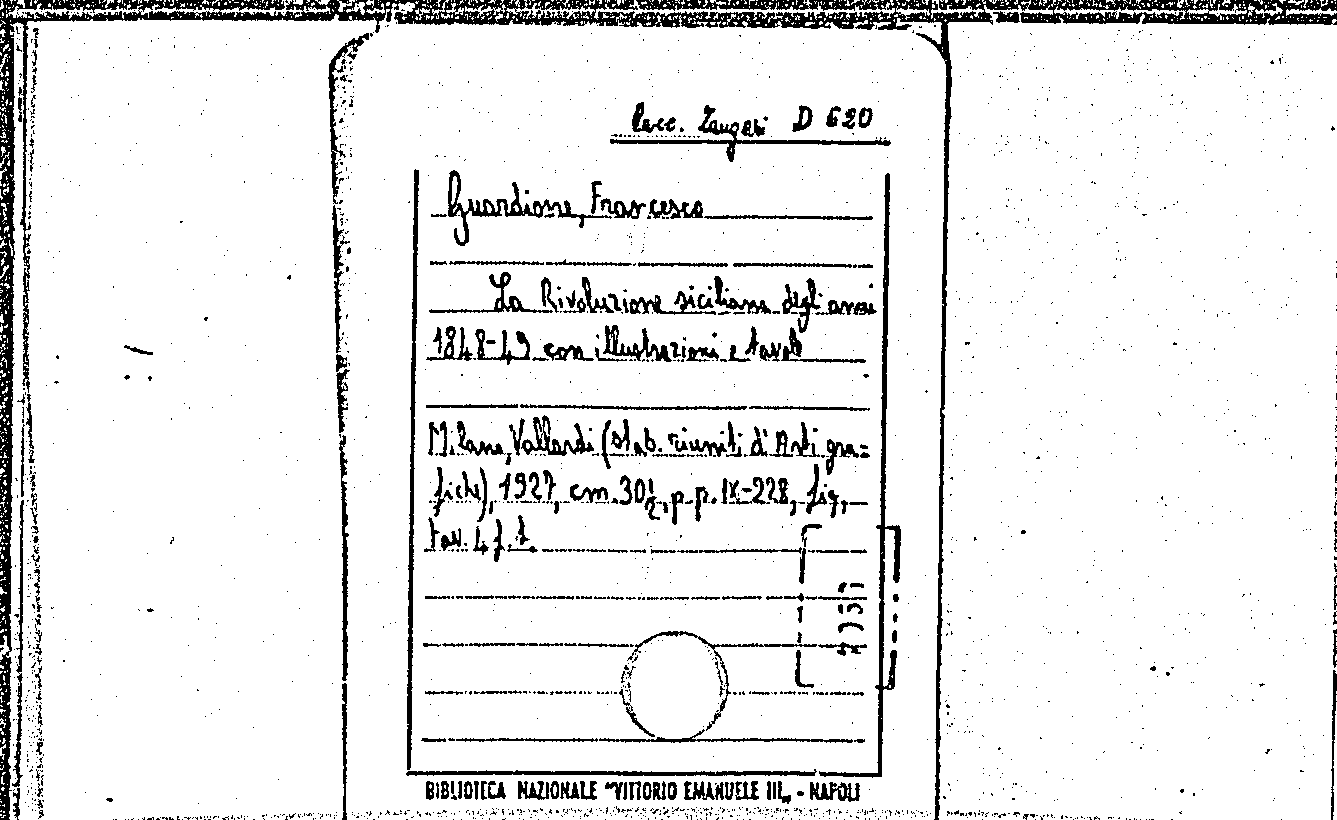 Racc. Zangari D 620
Guardione, Francesco
La Rivoluzione siciliana degli anni
1848-49 con illustrazioni e tavole
Milano, Vallardi (Stab. riuniti d'Arti gra=
fiche), 1927, cm. 30½, p.p. IX-228, fig.,
tav. 4 f. t.
BIBLIOTECA NAZIONALE "VITTORIO EMANUELE III„ - NAPOLI